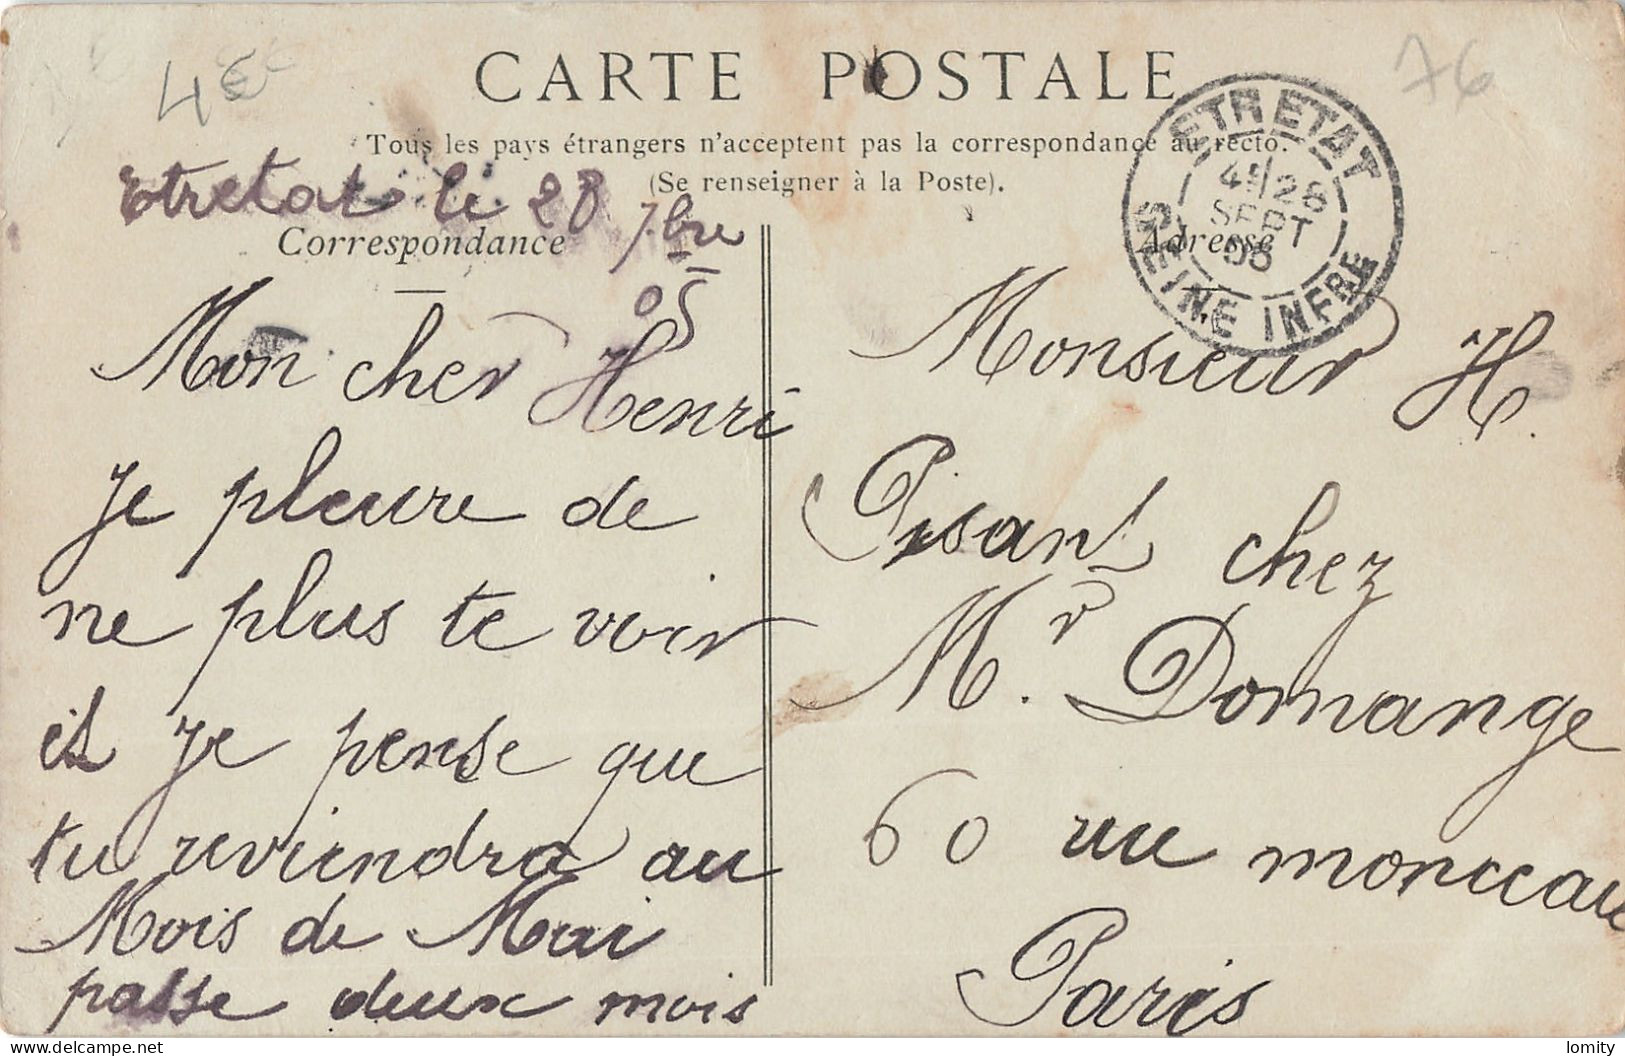 4€
76
CARTE POSTALE
Tous les pays étrangers n'acceptent pas la correspondance au recto.
(Se renseigner à la Poste).
ETRETAT
28
SEPT
SEINE INFRE
Etretat le 28 7bre
05
Correspondance
Mon cher Henri
je pleure de
ne plus te voir
et je pense que
tu reviendra au
Mois de Mai
passe deux mois
Adresse
Monsieur H.
Pisant chez
Mr. Domange
60 rue monceau
Paris
delcampe.net
lomity